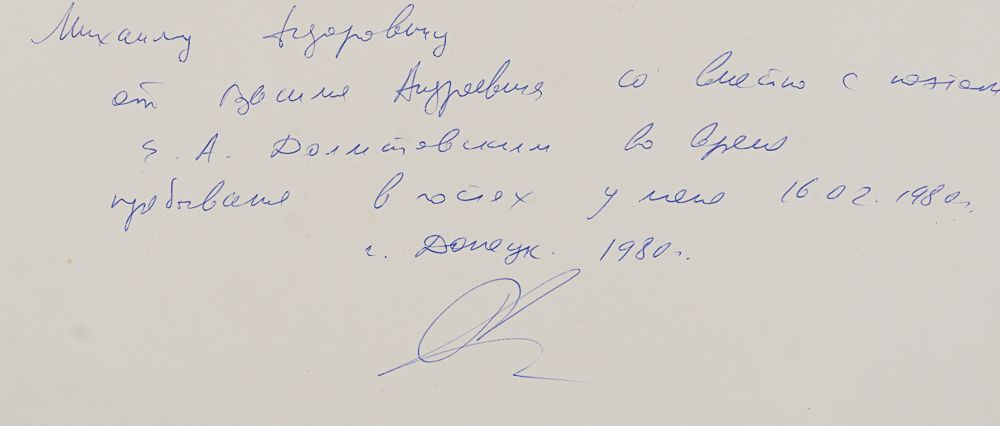 Михаилу Федоровичу
от Василия Андреевича со вместно с поэтом
Е. А. Долматовским во время
пребывания в гостях у меня 16.02.1980г.
г. Донецк. 1980г.